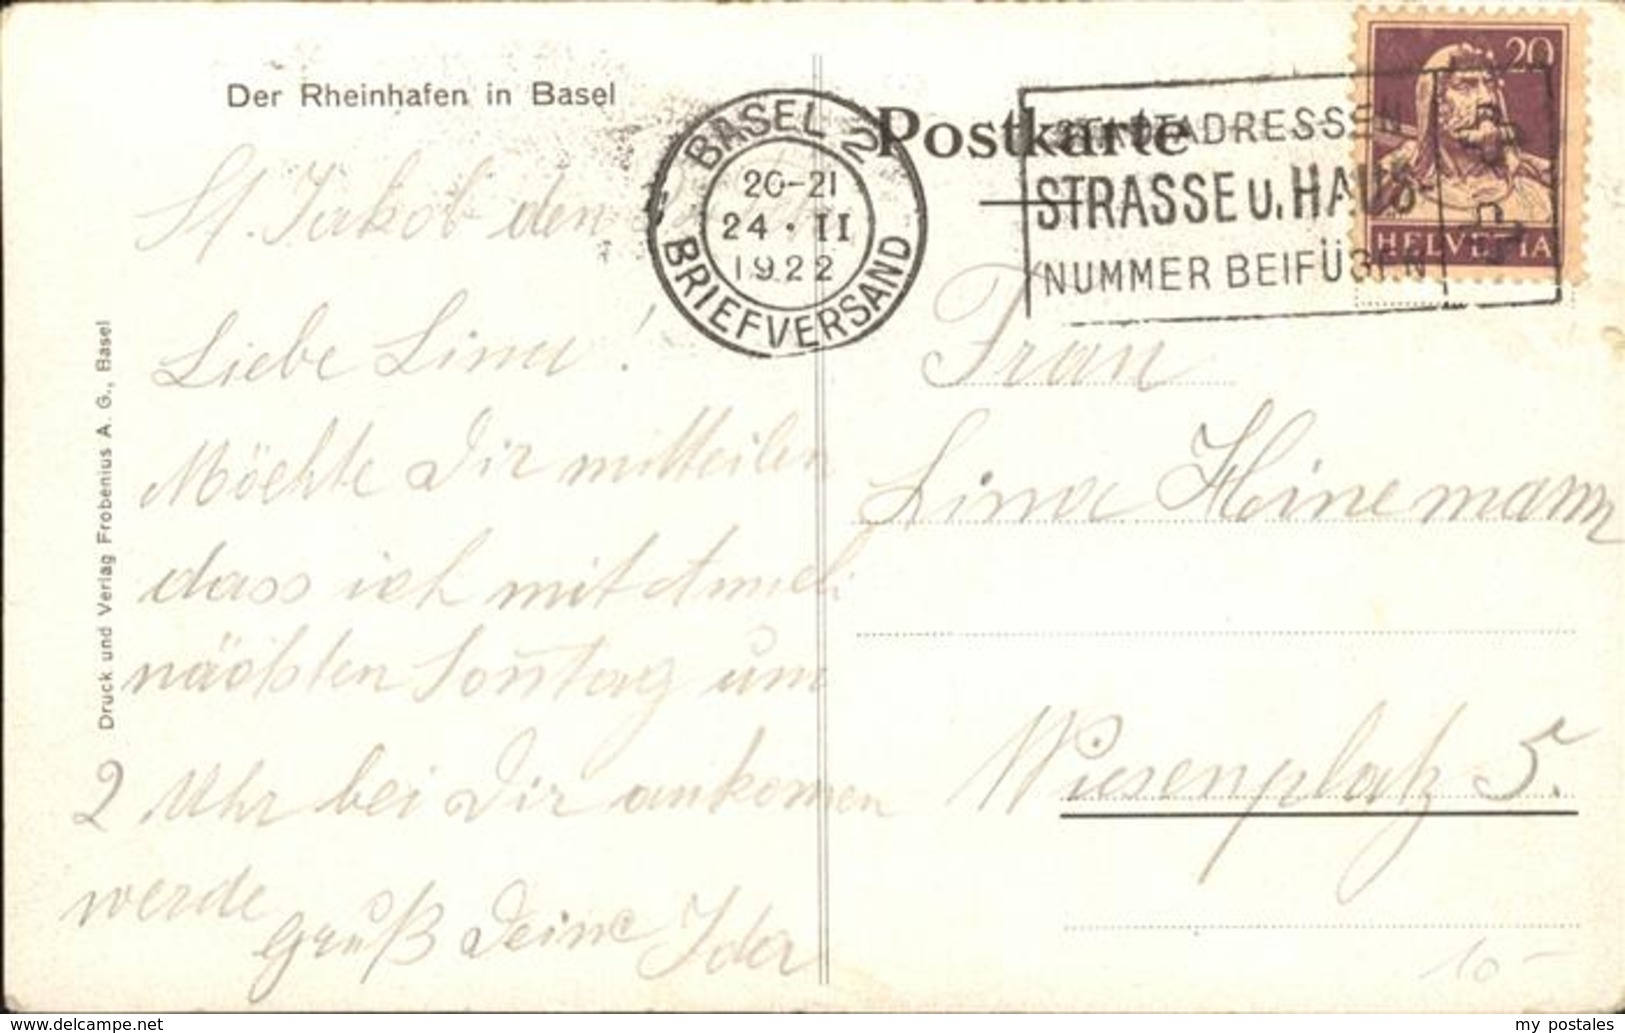 Der Rheinhafen in Basel
Postkarte
BASEL 2
20-21
24 · II
1922
BRIEFVERSAND
STADTADRESSEN
STRASSE u. HAUS-
NUMMER BEIFÜGEN
20
HELVETIA
St. Jakob den
Liebe Lina!
Möchte Dir mitteilen
dass ich mit
nächsten Sonntag um
2 Uhr bei Dir ankomen
werde
Gruß Deine Ida
Frau
Lina Heinemann
Wiesenplatz 5.
10-
Druck und Verlag Frobenius A. G., Basel
www.delcampe.net
my_postales